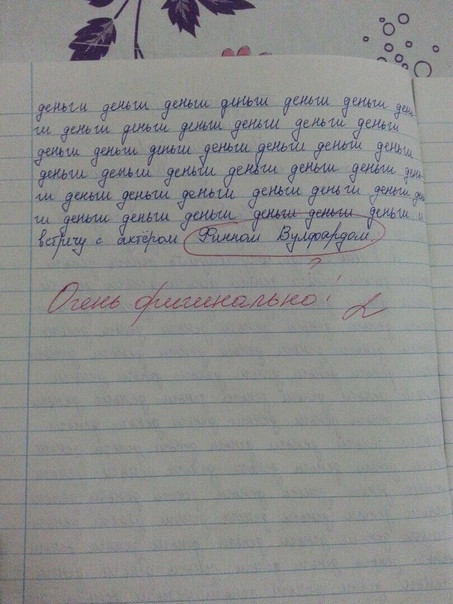 деньги деньги деньги деньги деньги деньги день-
ги деньги деньги деньги деньги деньги деньги
деньги деньги деньги деньги деньги деньги деньги
деньги деньги деньги деньги деньги деньги день-
ги деньги деньги деньги деньги деньги деньги
ги деньги деньги деньги деньги деньги деньги и
встречу с актёром Финном Вулфардом.
?
Очень оригинально! 2